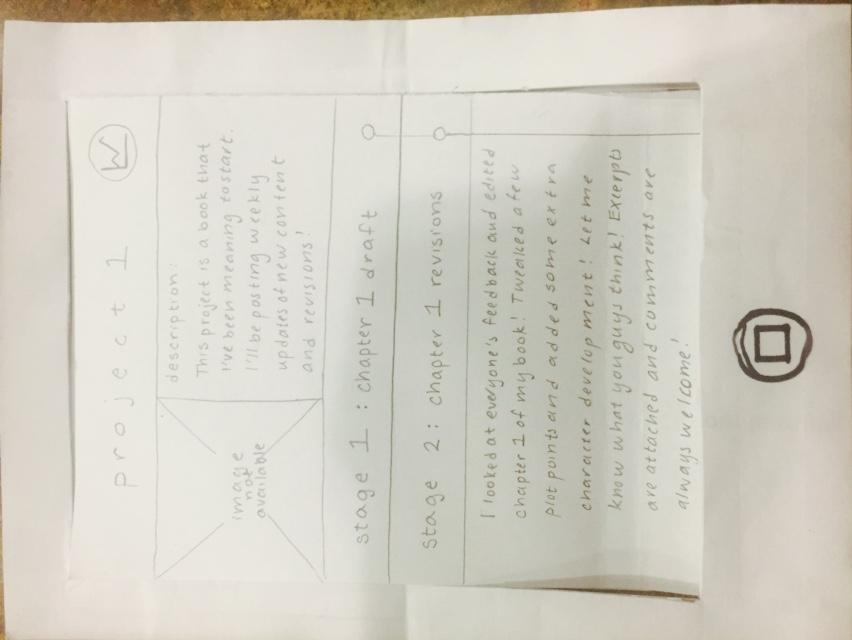 project 1
image
not
available
description:
This project is a book that
I've been meaning to start.
I'll be posting weekly
updates of new content
and revisions!
stage 1 : chapter 1 draft
stage 2 : chapter 1 revisions
I looked at everyone's feedback and edited
chapter 1 of my book! Tweaked a few
plot points and added some extra
character development! Let me
know what you guys think! Excerpts
are attached and comments are
always welcome!